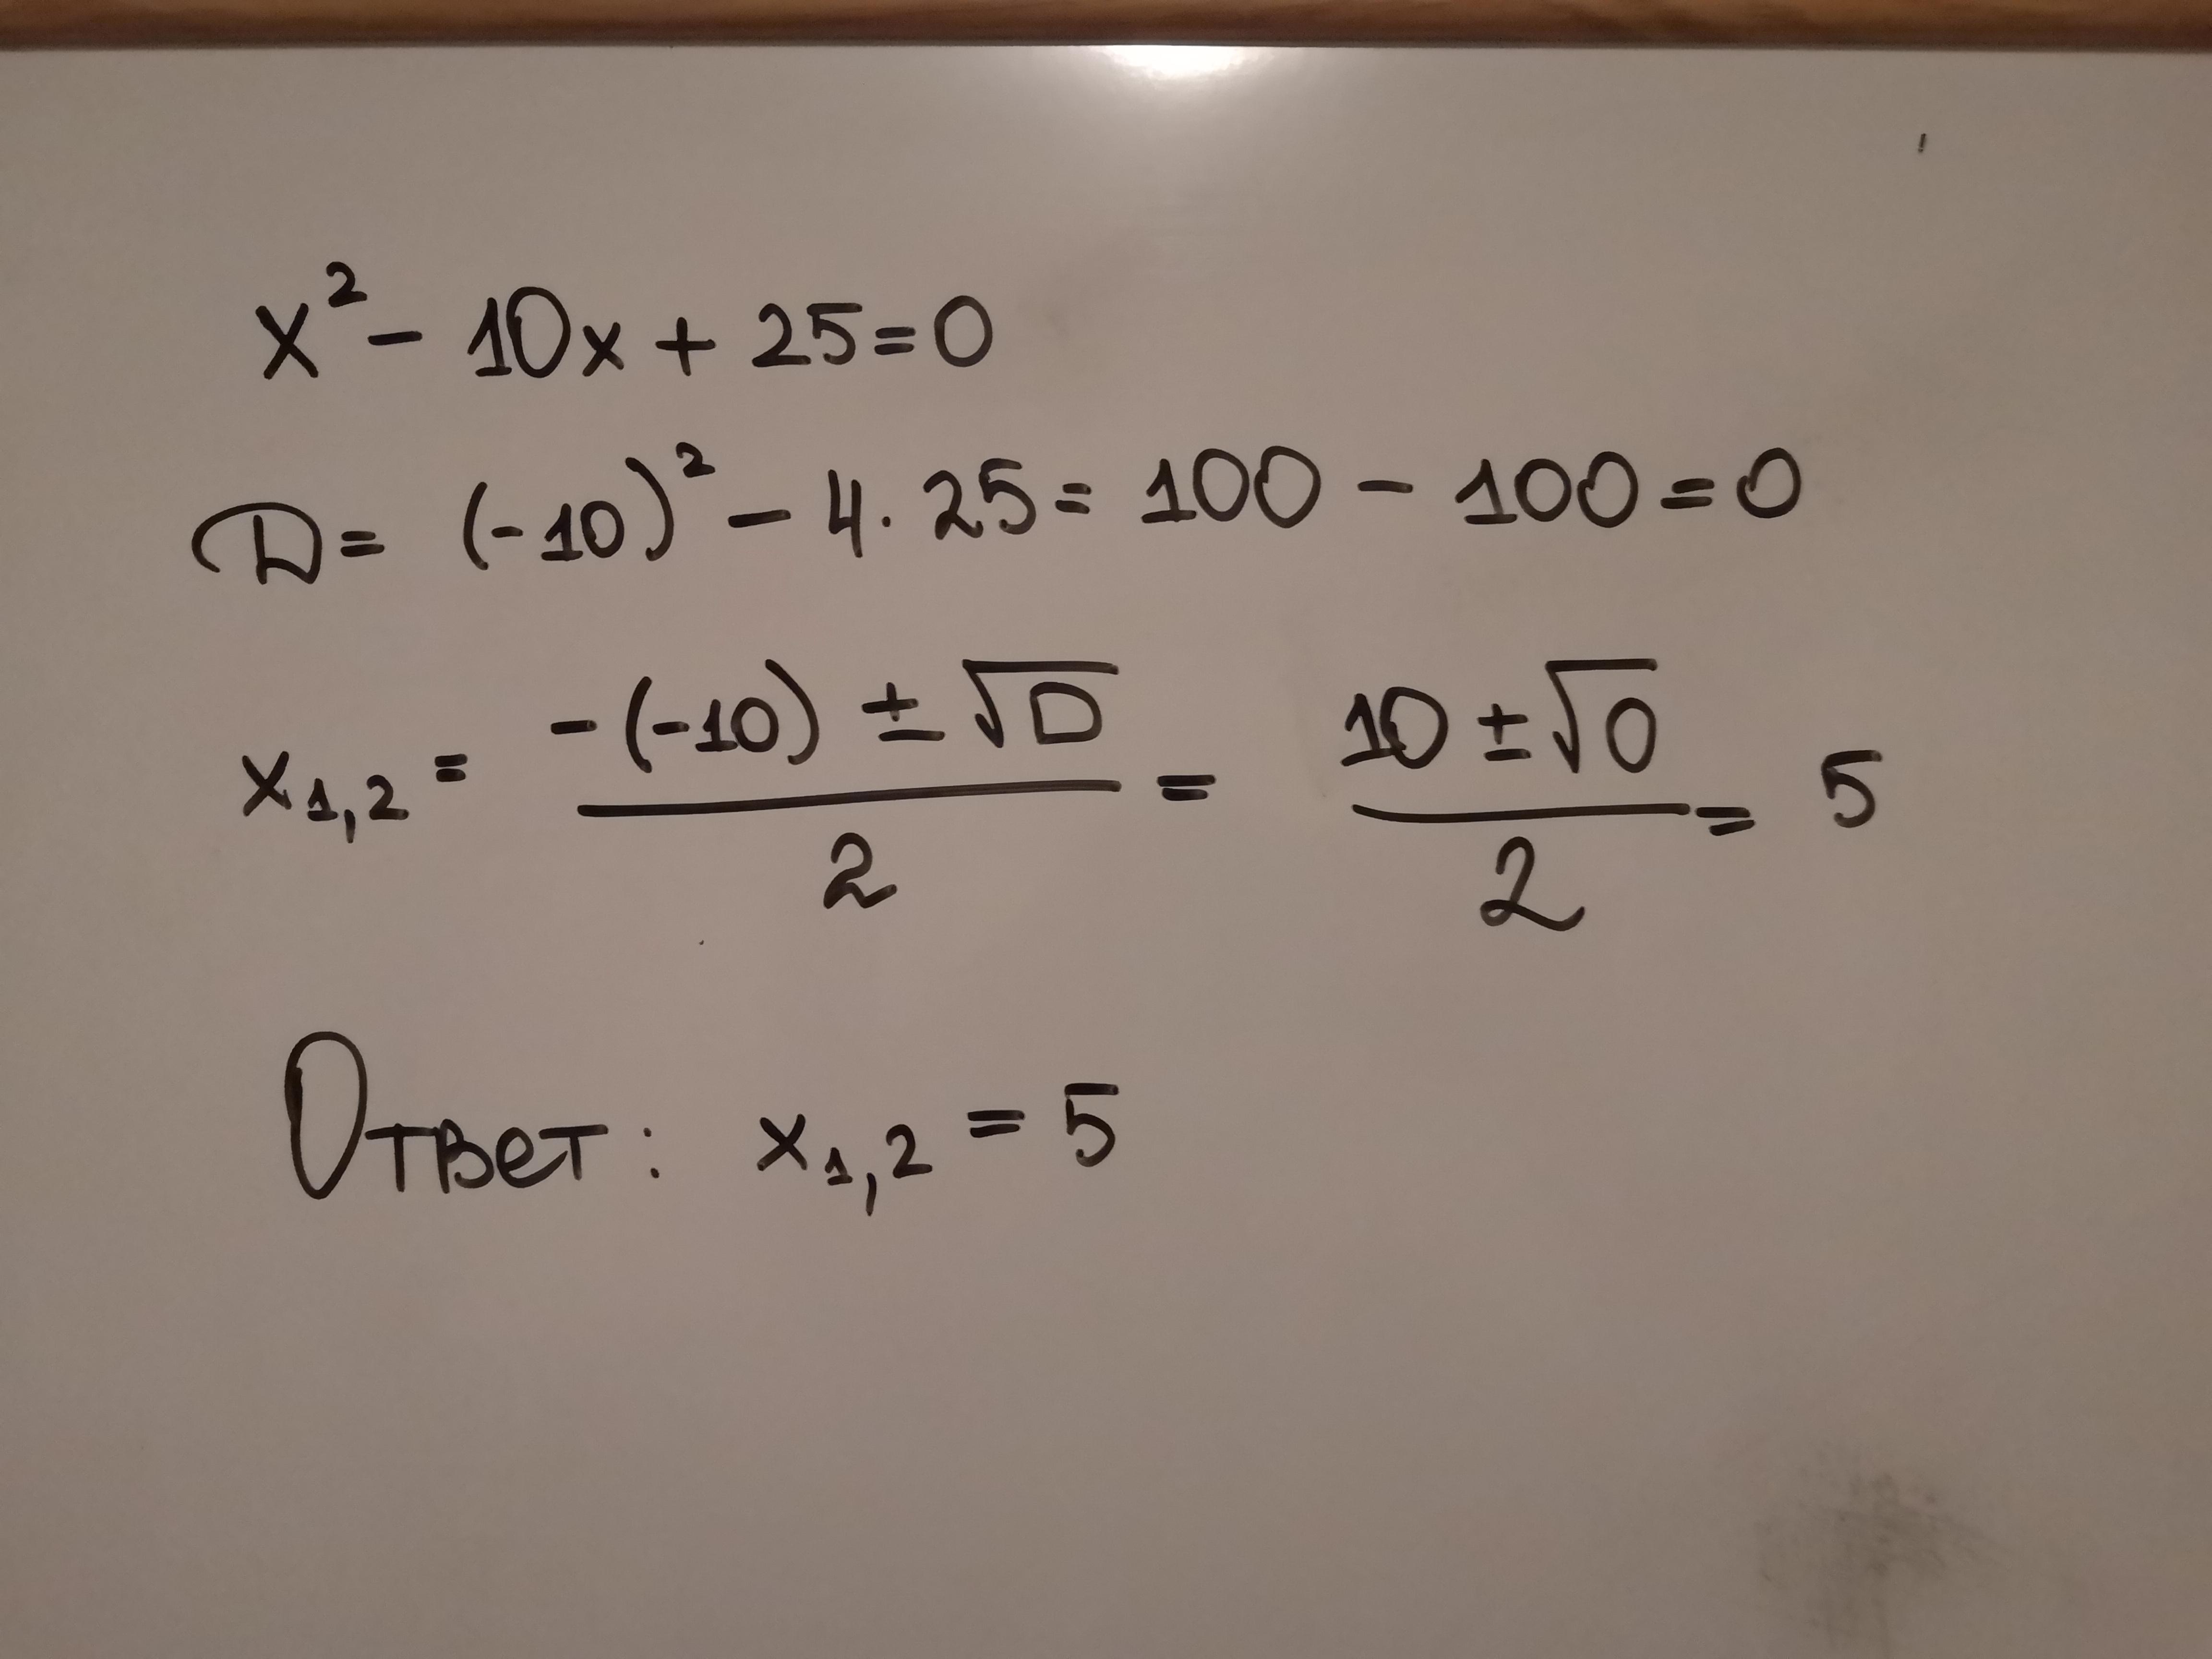 x² - 10x + 25 = 0
D = (-10)² - 4 · 25 = 100 - 100 = 0
x₁,₂ = (-(-10) ± √D) / 2 = (10 ± √0) / 2 = 5
Ответ: x₁,₂ = 5